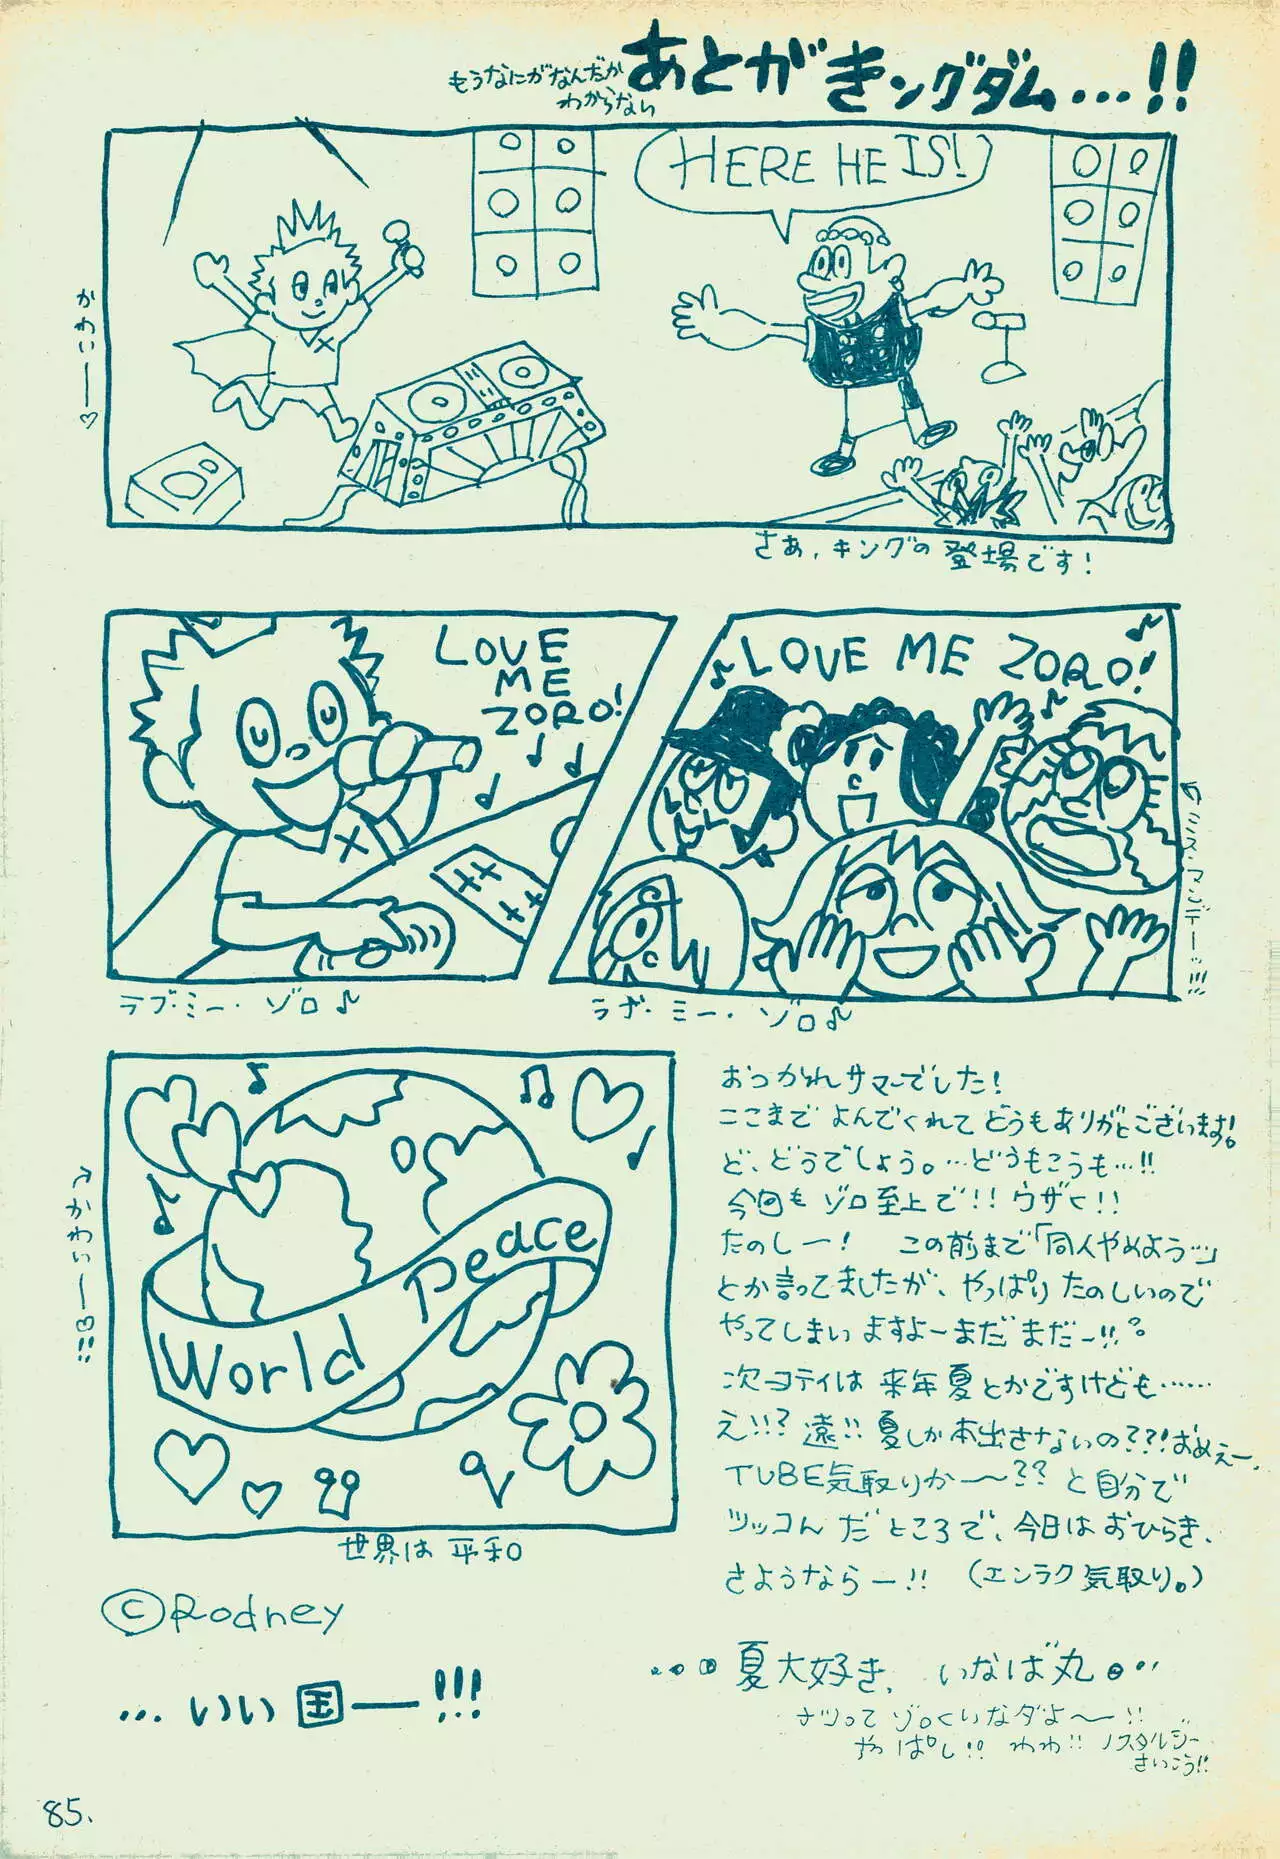 もうなにがなんだか
わからない
あとがきングダム...!!
HERE HE IS!
かわいー♡
さあ、キングの登場です!
LOVE
ME
ZORO!
LOVE ME ZORO!
ラブ・ミー・ゾロ♪
ラブ・ミー・ゾロ♪
World Peace
世界は平和
おつかれサマーでした!
ここまでよんでくれてどうもありがとございます!
ど、どうでしょう。…どうもこうも…!!
今回もゾロ至上で!!ウザく!!
たのしー! この前まで「同人やめよう…」
とか言ってましたが、やっぱりたのしいので
やってしまいますよーまだまだー!!。
次コティは来年夏とかですけども……
え!!?遠!!夏しか本出さないの??!おめぇー、
TUBE気取りか〜??と自分で
ツッコんだところで、今日はおひらき、
さようならー!! (エンラク気取り。)
©Rodney
...いい国ー!!!
夏大好き、いなば丸
ナツってゾロくいなダよ〜!!
やっぱし!! わわ!! ノスタルジー
さいこう!!
85.